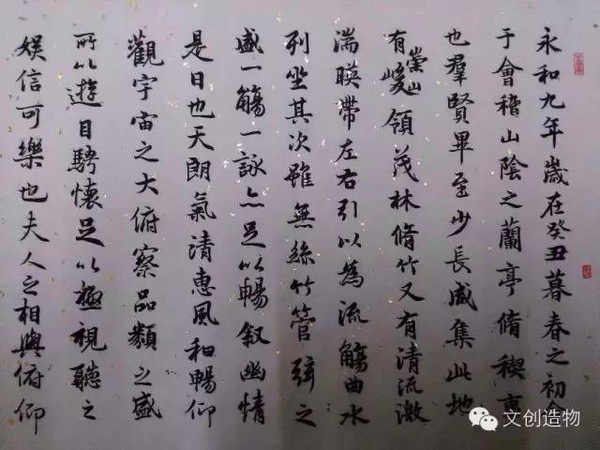 永和九年歲在癸丑暮春之初會
于會稽山陰之蘭亭脩稧事
也羣賢畢至少長咸集此地
有崇山峻領茂林脩竹又有清流激
湍暎帶左右引以為流觴曲水
列坐其次雖無絲竹管弦之
盛一觴一詠亦足以暢叙幽情
是日也天朗氣清惠風和暢仰
觀宇宙之大俯察品類之盛
所以遊目騁懷足以極視聽之
娛信可樂也夫人之相與俯仰
文创造物